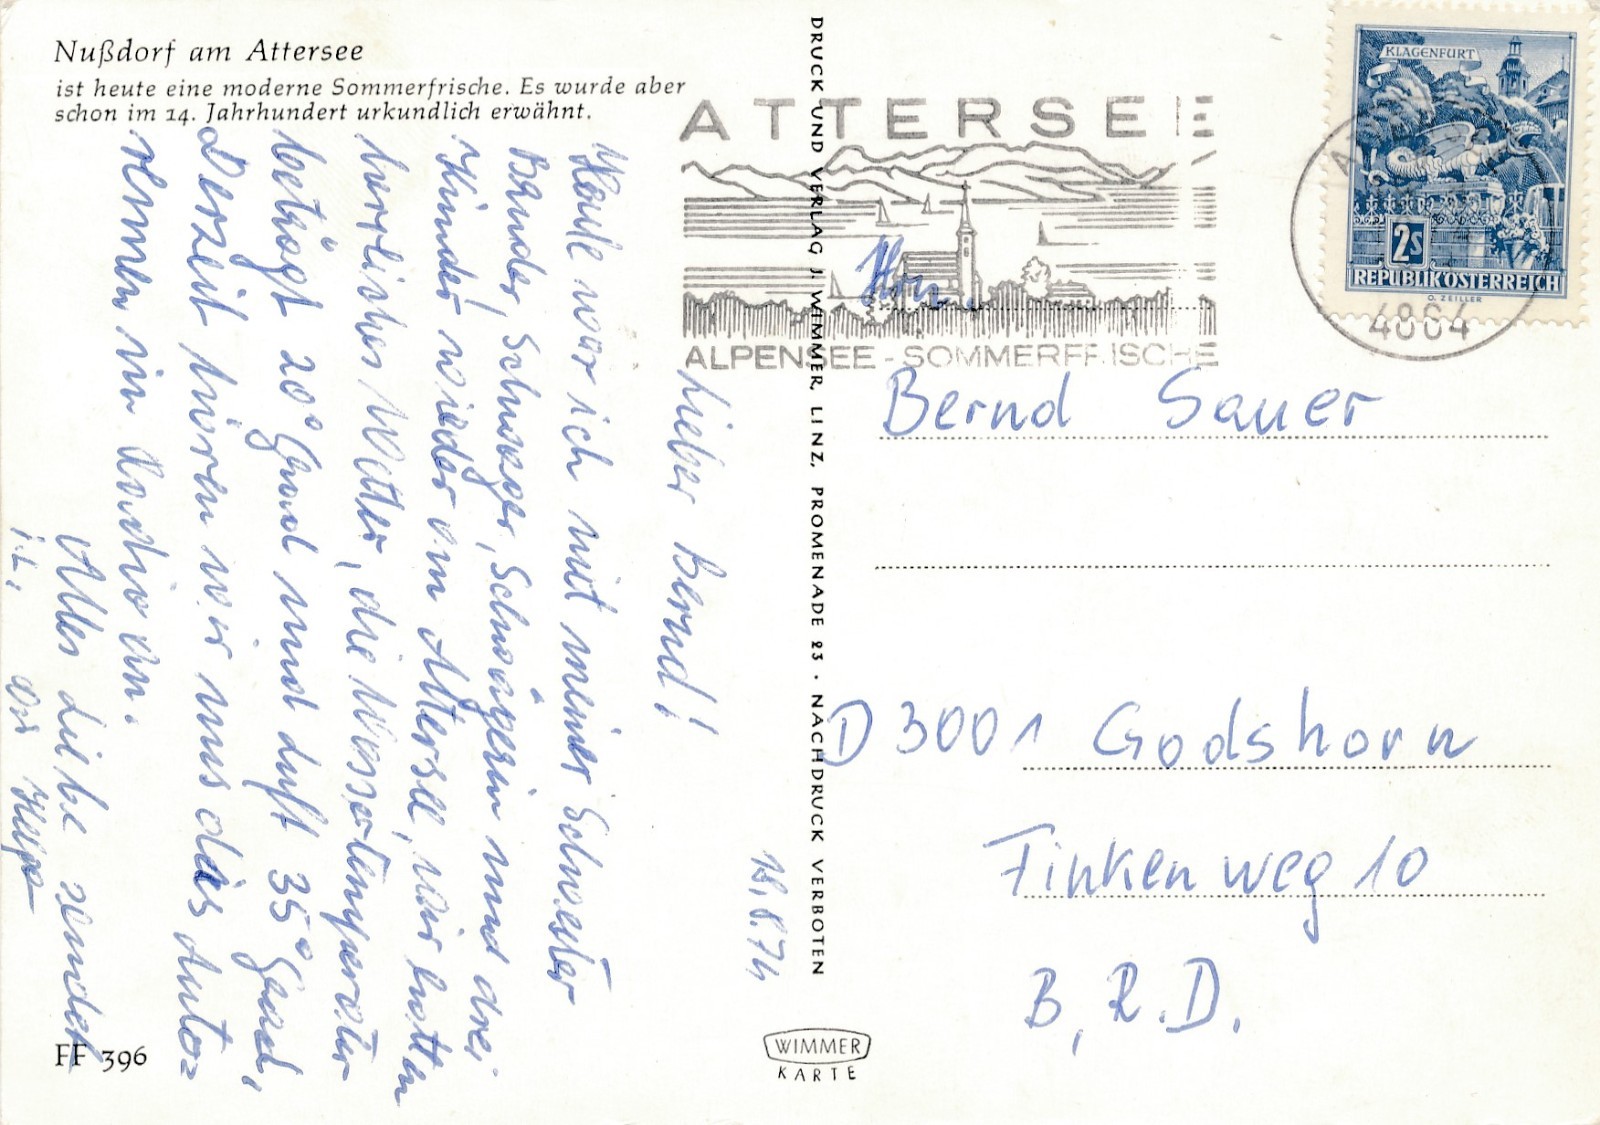 Nußdorf am Attersee
ist heute eine moderne Sommerfrische. Es wurde aber
schon im 14. Jahrhundert urkundlich erwähnt.
18.8.74
Lieber Bernd!
Heute war ich mit meiner Schwester
Bruder, Schwager, Schwägerin und drei
Kinder wieder am Attersee, wir hatten
herrliches Wetter, die Wassertemperatur
beträgt 20° Grad und Luft 35° Grad,
Derzeit hören wir uns das Auto=
rennen im Radio an.
Alles Liebe sendet
DRUCK UND VERLAG J. WIMMER, LINZ, PROMENADE 23 · NACHDRUCK VERBOTEN
ATTERSEE
ALPENSEE-SOMMERFRISCHE
KLAGENFURT
2S
REPUBLIK ÖSTERREICH
O. ZEILLER
4864
Hrn.
Bernd Sauer
D 3001 Godshorn
Finkenweg 10
B.R.D.
FF 396
WIMMER
KARTE